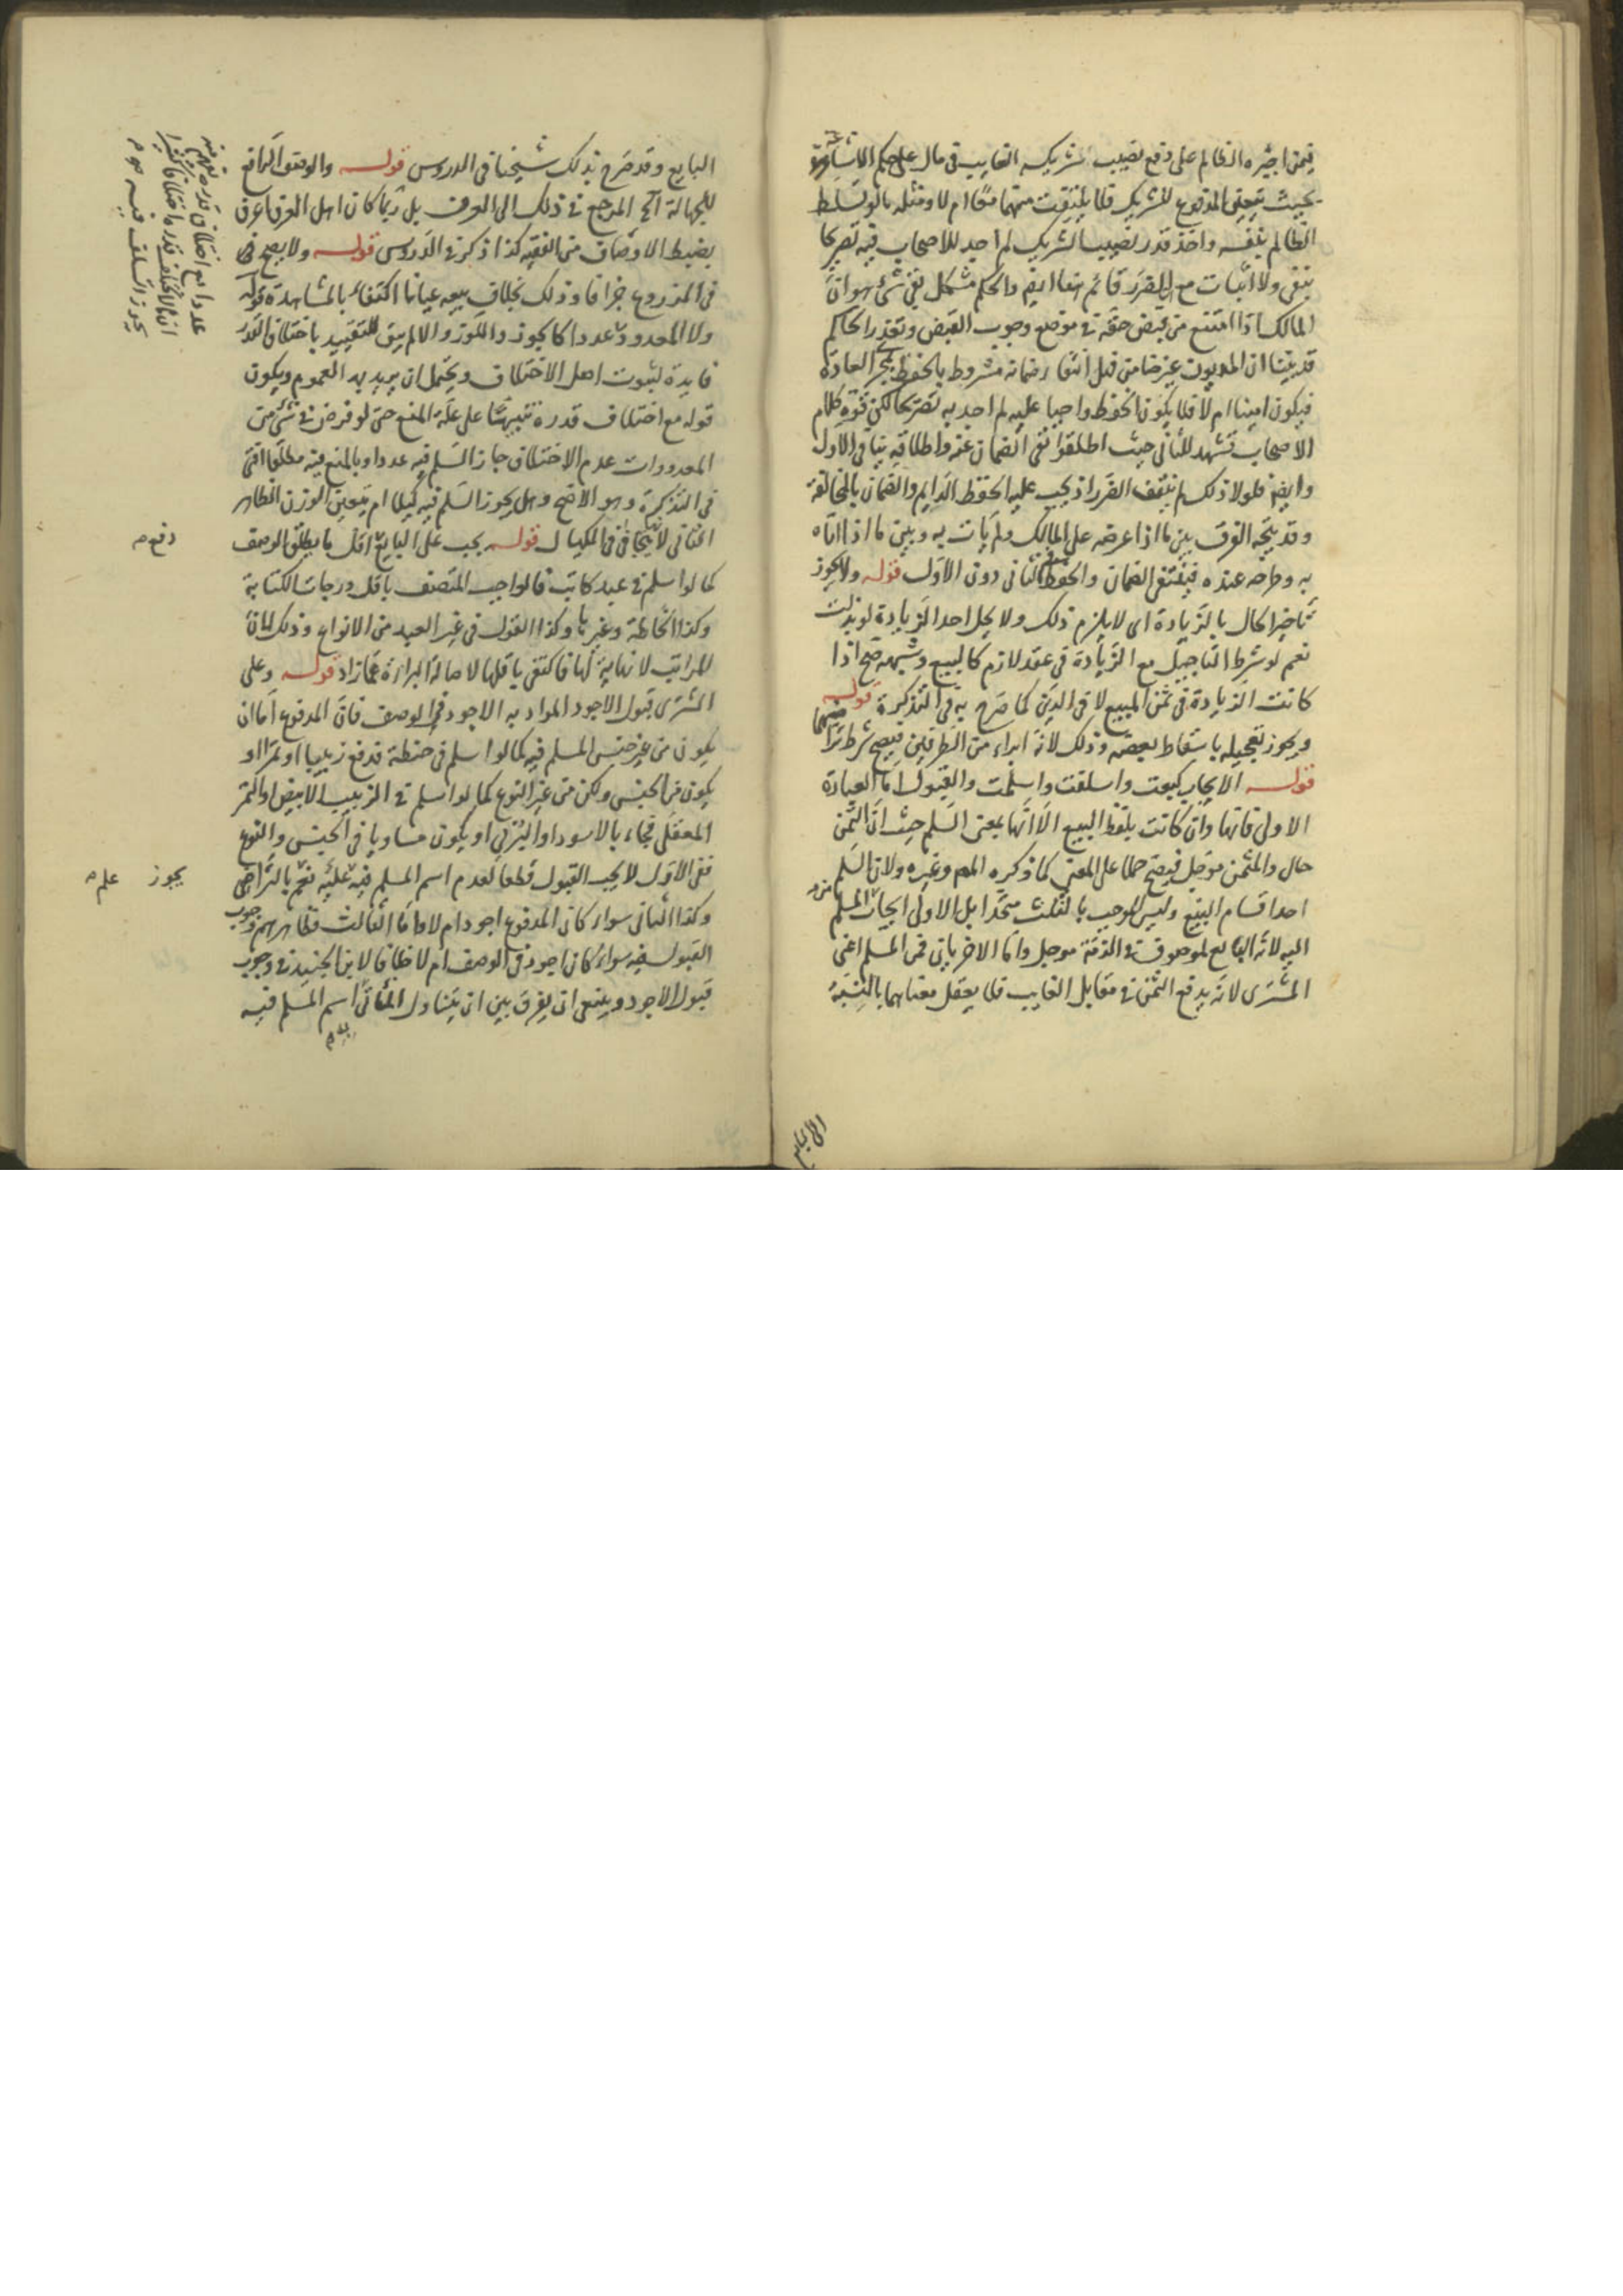 فيمن اجبره الظالم على دفع نصيب شريكه الغايب في مال على حكم الاشاعة
بحيث يتعين المدفوع للشريك فلا يلتفت منهما معًا ام لا ومثله ما لو تسلط
الظالم بنفسه واخذ قدر نصيب الشريك لم اجد للاصحاب فيه تصريحا
بنفي ولا اثبات مع ان الضرر قائم هنا ايضا والحكم مشكل بقي شيء هو ان
المالك اذا امتنع من قبض حقه في موضع وجوب القبض وتعذر الحاكم
قد بينا ان المديون غير ضامن فهل انتفاء ضمانه مشروط بالحفظ بمجرى العادة
فيكون امينا ام لا فلا يكون الحفظ واجبا عليه لم اجد به تصريحا لكن قوة كلام
الاصحاب تشهد للثاني حيث اطلقوا نفي الضمان عنه واطلاقه ينافي الاول
وايضا فلولا ذلك لم ينتف الضرر اذ يجب عليه الحفظ الدايم والضمان بالمخالفة
وقد يتجه الفرق بين ما اذا عرضه على المالك ولم يات به وبين ما اذا اتاه
به وطرحه عنده فينتفي الضمان والحفظ في الثاني دون الاول قوله ولا يجوز
تاخير الحال بالزيادة اي لا يلزم ذلك ولا يحل احد الزيادة لو بذلت
نعم لو شرط التاجيل مع الزيادة في عقد لازم كالبيع وشبهه صح اذا
كانت الزيادة في ثمن المبيع لا في الدين كما صرح به في التذكرة قوله
ويجوز تعجيله باسقاط بعضه وذلك لانه ابراء من الطرفين فيصح شرط تراضيهما
قوله الايجاب كبعت واسلفت واسلمت والقبول اما العبارة
الاولى فانها وان كانت بلفظ البيع الا انها بمعنى السلم حيث ان الثمن
حال والمثمن موجل فيصح حملا على المعنى كما ذكره المص وغيره ولان السلم
احد اقسام البيع وليس الموجب بالثلث متحدا بل الاولى ايجاب من المسلم
اليه لانه البايع لموصوف في الذمة موجل واما الاخريان فمن المسلم اعني
المشتري لانه يدفع الثمن في مقابل الغايب فلا يعقل معناهما بالنسبة
الى البايع
البايع وقد صرح بذلك شيخنا في الدروس قوله والوصف الرافع
للجهالة الخ المرجع في ذلك الى العرف بل ربما كان اهل العرف اعرف
بضبط الاوصاف من الفقيه كذا ذكر في الدروس قوله ولا يصح في
في المذروع جزافا وذلك بخلاف بيعه عيانا اكتفاء بالمشاهدة قوله
ولا المعدود عددا كالجوز واللوز والا لم يبق للتقييد باختلاف القدر
فايدة لثبوت اصل الاختلاف ويحتمل ان يريد به العموم ويكون
قوله مع اختلاف قدره تنبيهًا على علة المنع حتى لو فرض في شيء من
المعدودات عدم الاختلاف جاز السلم فيه عددا وبالمنع فيه مطلقا افتى
في التذكرة وهو الاصح وهل يجوز السلم فيه كيلا ام يتعين الوزن الظاهر
الثاني لانه يتجافى في المكيال قوله يجب على البايع اقل ما يطلق الوصف
كما لو اسلم في عبد كاتب فالواجب المتصف باقل درجات الكتابة
وكذا الخياطة وغيرها وكذا القول في غير العبد من الانواع وذلك لان
المراتب لا نهاية لها فاكتفى باقلها لاصالة البراءة عما زاد قوله وعلى
المشتري قبول الاجود المراد به الاجود في الوصف فان المدفوع اما ان
يكون من غير جنس المسلم فيه كما لو اسلم في حنطة فدفع زبيبا او تمرا او
يكون من الجنس ولكن من غير النوع كما لو اسلم في الزبيب الابيض او التمر
المعقلي فجاء بالاسود او البرني او يكون مساويا في الجنس والنوع
ففي الاول لا يجب القبول قطعا لعدم اسم المسلم فيه عليه نعم بالتراضي
وكذا الثاني سواء كان المدفوع اجود ام لا واما الثالث فظاهرهم وجوب
القبول فيه سواء كان اجود في الوصف ام لا خلافا لابن الجنيد في وجوب
قبول الاجود وينبغي ان يفرق بين ان يتناول الماتي اسم المسلم فيه
به م
عددا مع اختلاف قدره
يجوز السلف فيه م
دفع م
يجوز علم م